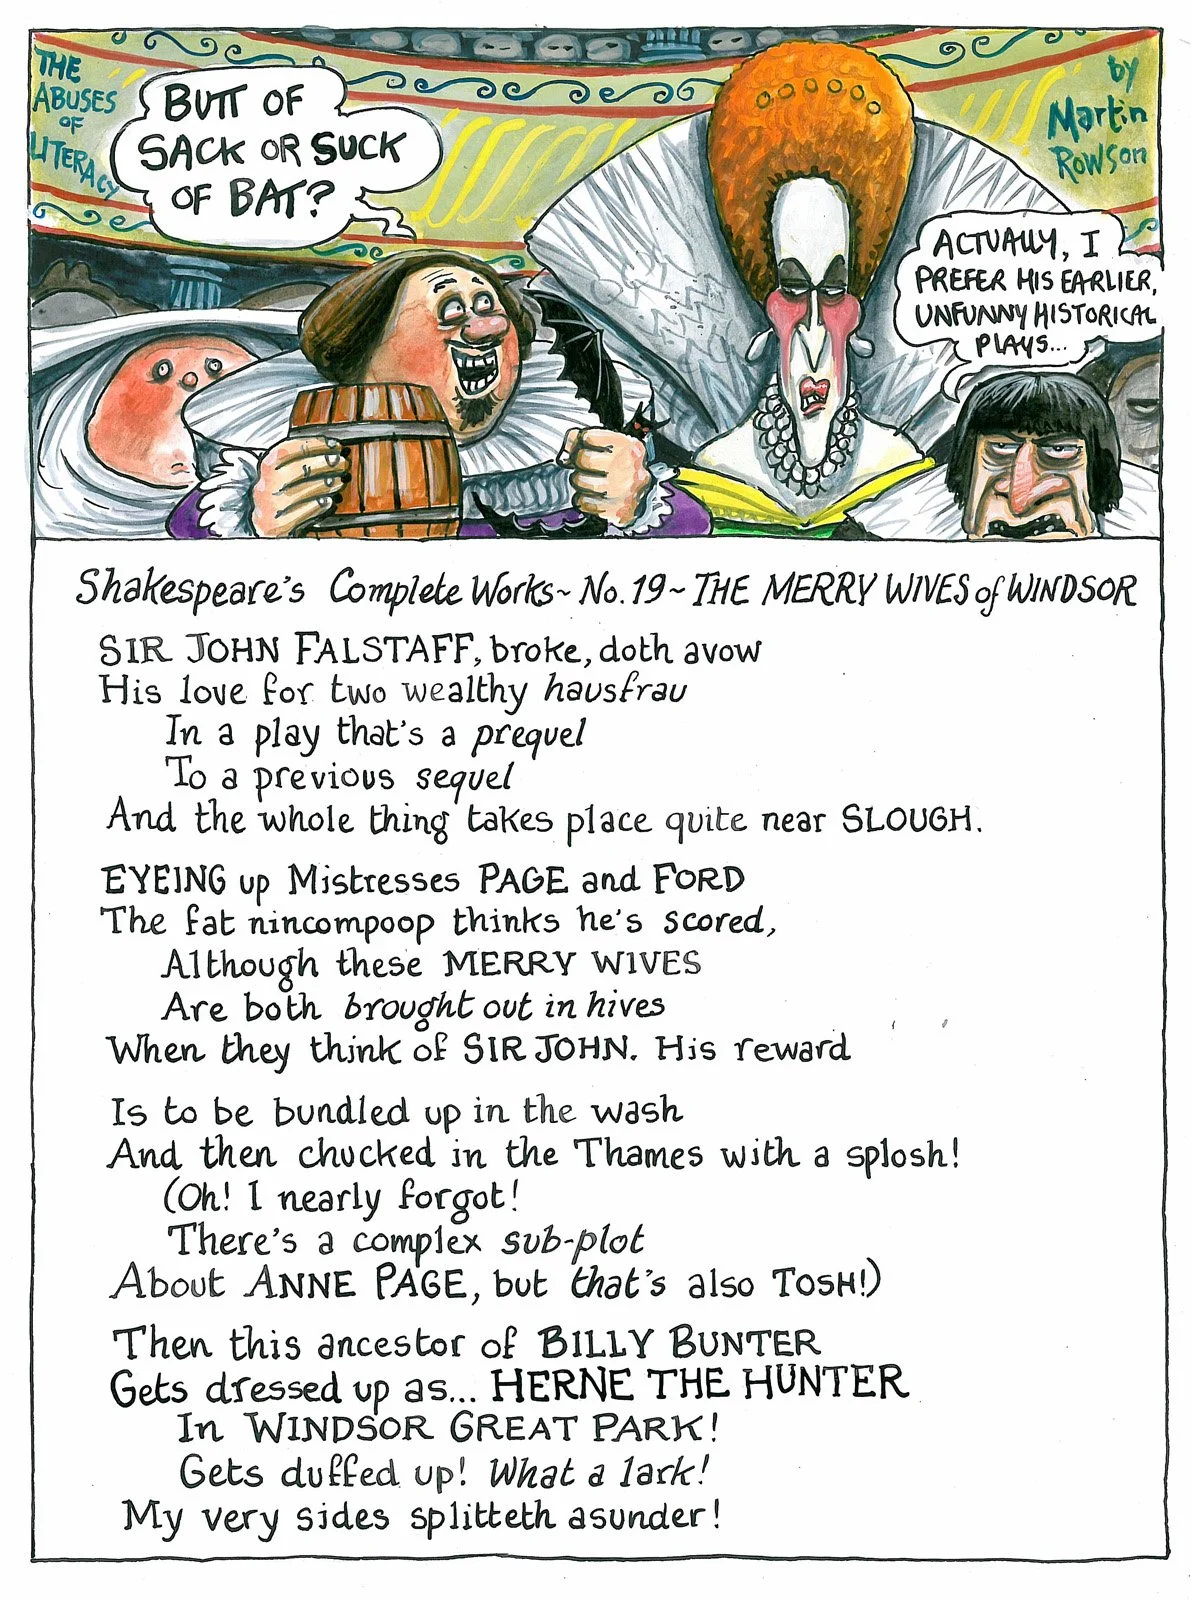 THE
ABUSES
OF
LITERACY
by
Martin
Rowson
BUTT OF
SACK OR SUCK
OF BAT?
ACTUALLY, I
PREFER HIS EARLIER,
UNFUNNY HISTORICAL
PLAYS...
Shakespeare's Complete Works~No.19~THE MERRY WIVES of WINDSOR
SIR JOHN FALSTAFF, broke, doth avow
His love for two wealthy hausfrau
In a play that's a prequel
To a previous sequel
And the whole thing takes place quite near SLOUGH.
EYEING up Mistresses PAGE and FORD
The fat nincompoop thinks he's scored,
Although these MERRY WIVES
Are both brought out in hives
When they think of SIR JOHN. His reward
Is to be bundled up in the wash
And then chucked in the Thames with a splosh!
(Oh! I nearly forgot!
There's a complex sub-plot
About ANNE PAGE, but that's also TOSH!)
Then this ancestor of BILLY BUNTER
Gets dressed up as... HERNE THE HUNTER
In WINDSOR GREAT PARK!
Gets duffed up! What a lark!
My very sides splitteth asunder!